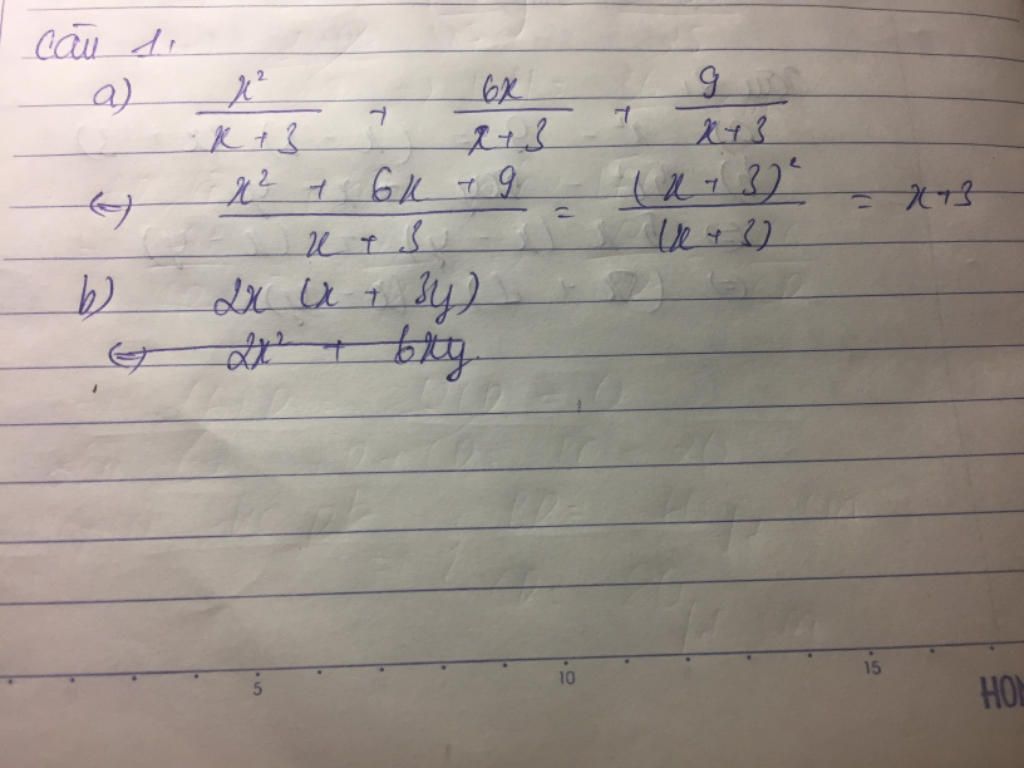 Câu 1.
a) x²/(x + 3) + 6x/(x + 3) + 9/(x + 3)
(=) (x² + 6x + 9)/(x + 3) = (x + 3)²/(x + 3) = x + 3
b) 2x (x + 3y)
(=) 2x² + 6xy
5 10 15
HON